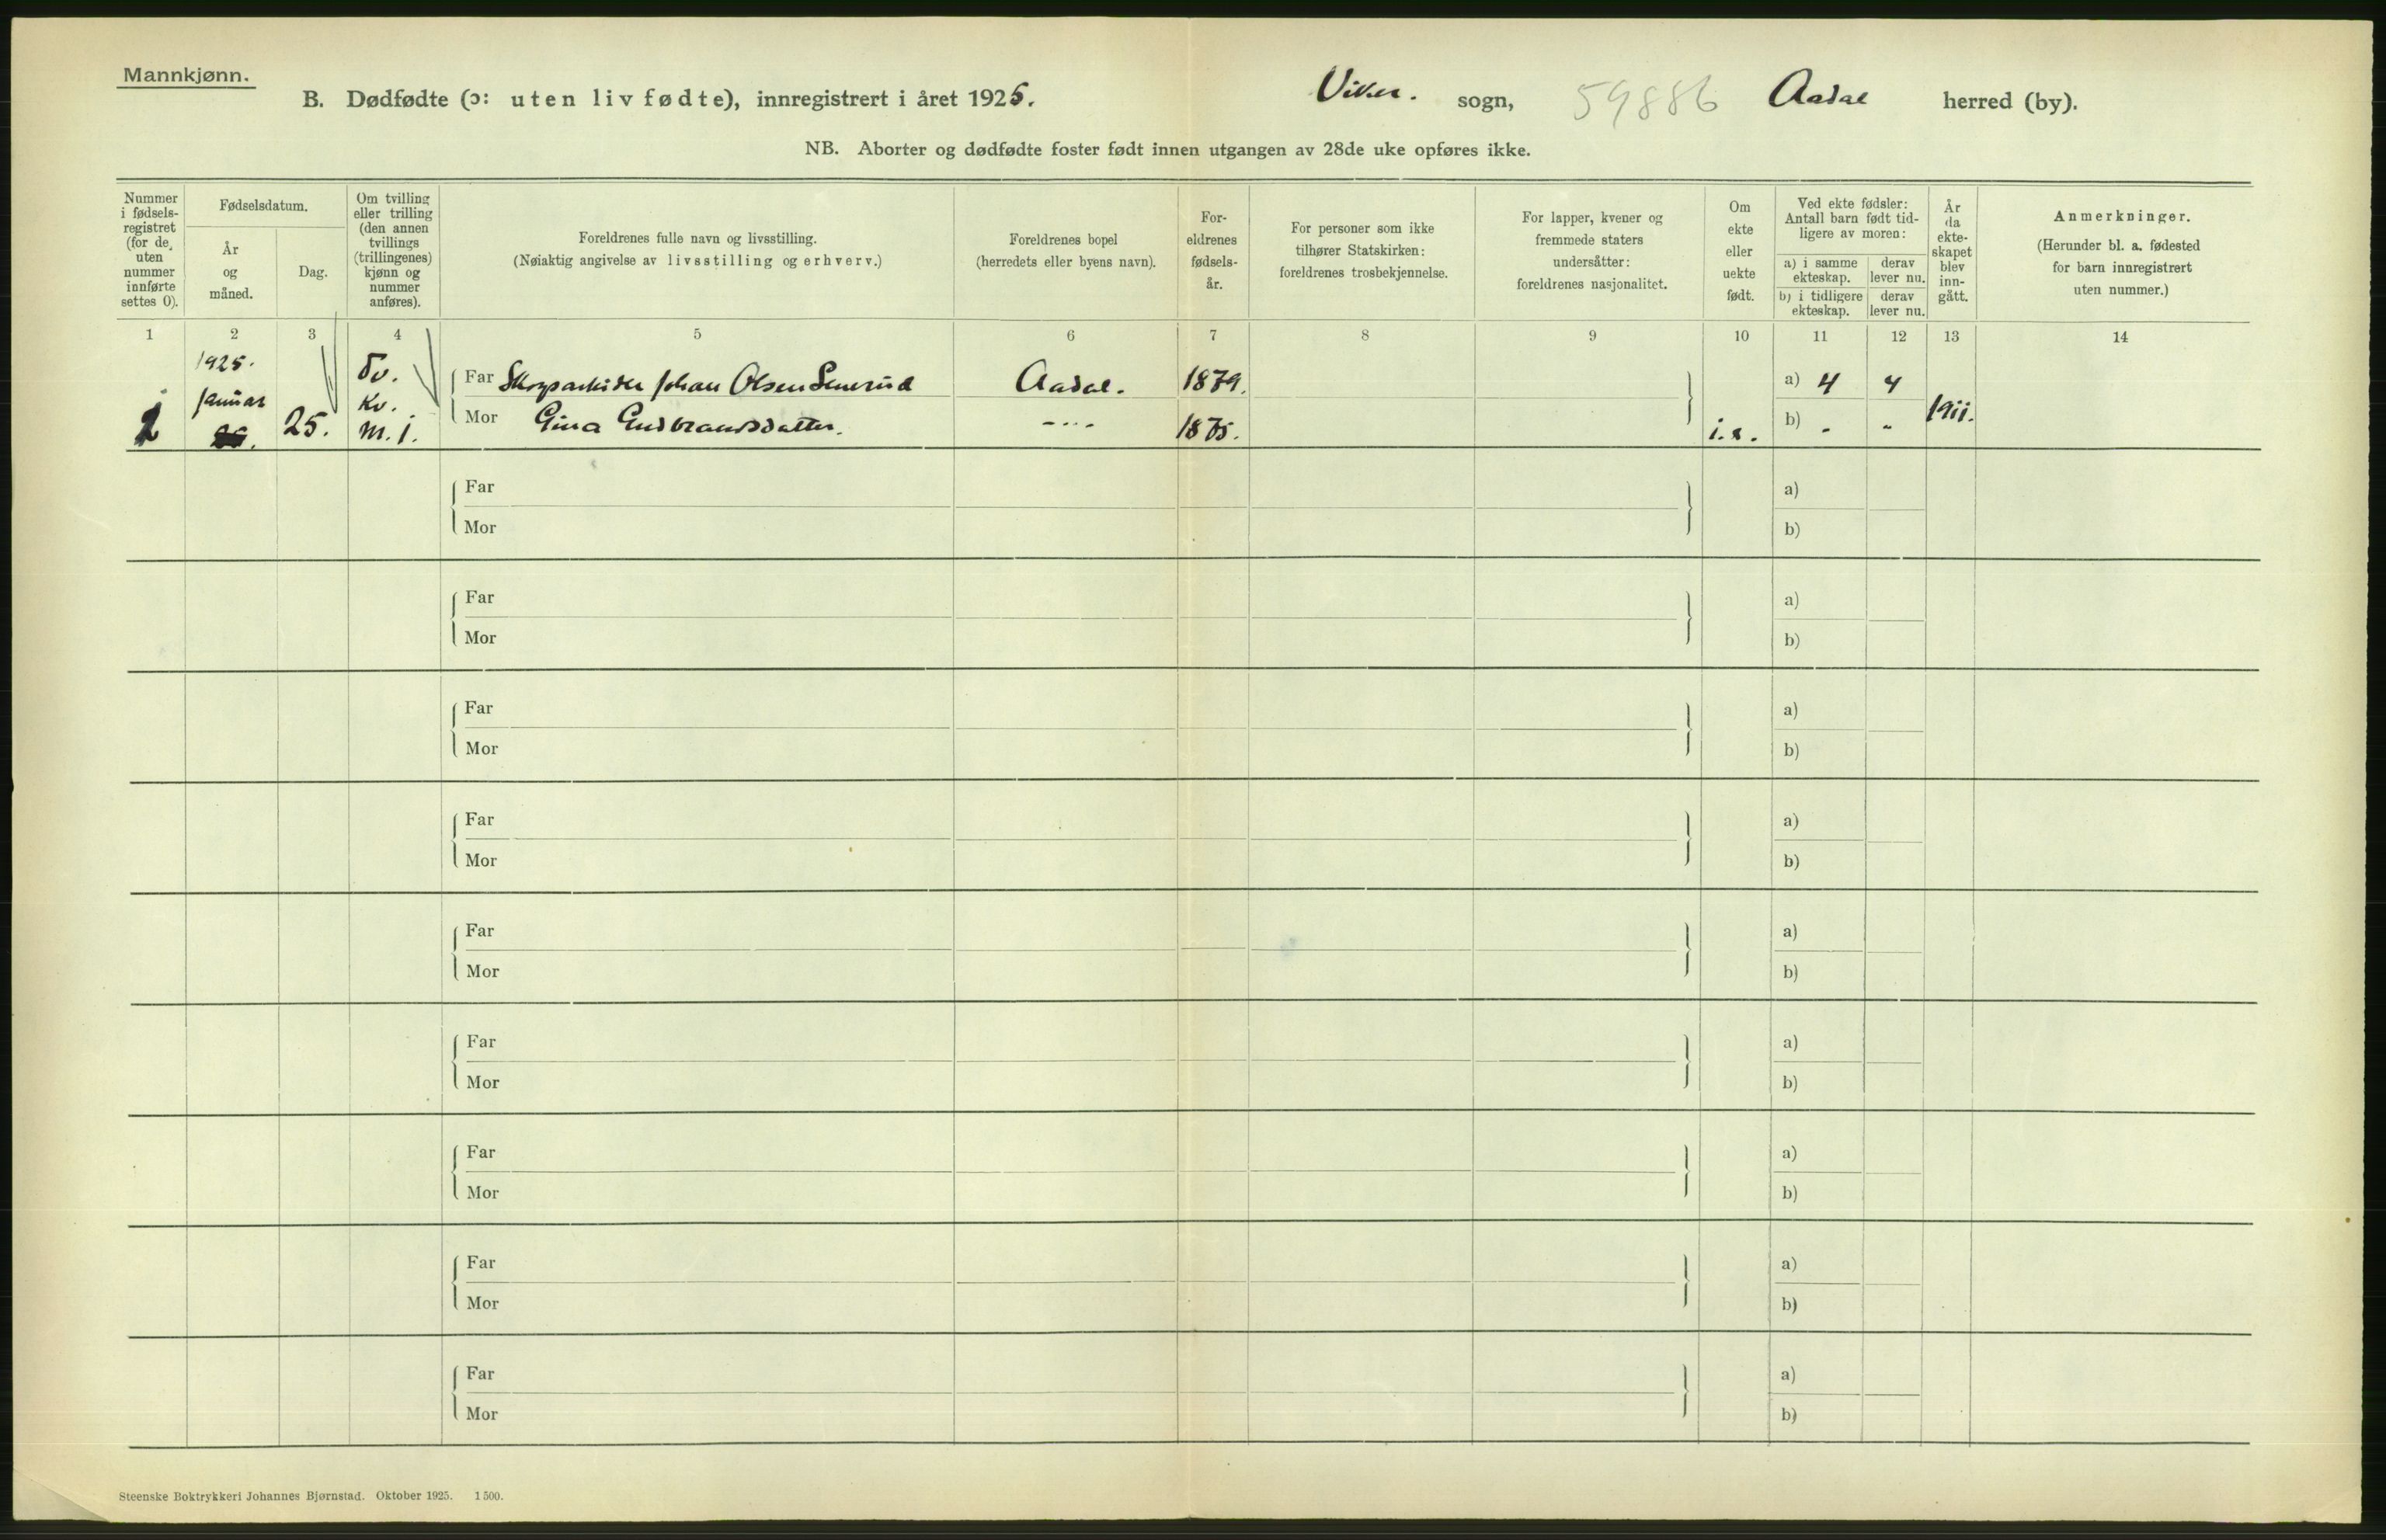 Mannkjønn.
B. Dødfødte (ɔ: uten liv fødte), innregistrert i året 1925. Viker. sogn, 59886 Aadal herred (by).
NB. Aborter og dødfødte foster født innen utgangen av 28de uke opføres ikke.
Nummer i fødsels- registret (for de uten nummer innførte settes 0).
Fødselsdatum.
År og måned.
Dag.
Om tvilling eller trilling (den annen tvillings (trillingenes) kjønn og nummer anføres).
Foreldrenes fulle navn og livsstilling.
(Nøiaktig angivelse av livsstilling og erhverv.)
Foreldrenes bopel
(herredets eller byens navn).
For- eldrenes fødsels- år.
For personer som ikke tilhører Statskirken: foreldrenes trosbekjennelse.
For lapper, kvener og fremmede staters undersåtter: foreldrenes nasjonalitet.
Om ekte eller uekte født.
Ved ekte fødsler: Antall barn født tid- ligere av moren:
a) i samme ekteskap.
derav lever nu.
b) i tidligere ekteskap.
derav lever nu.
År da ekte- skapet blev inn- gått.
Anmerkninger.
(Herunder bl. a. fødested for barn innregistrert uten nummer.)
1 2 3 4 5 6 7 8 9 10 11 12 13 14
1925. Tv.
Far Skogsarbeider Johan Olsen Senerud Aadal. 1879. a) 4 4
januar Kv.
1 25. M. 1. Mor Gina Gudbrandsdatter. -"- 1875. i.e. b) - - 1911.
Far a)
Mor b)
Far a)
Mor b)
Far a)
Mor b)
Far a)
Mor b)
Far a)
Mor b)
Far a)
Mor b)
Far a)
Mor b)
Far a)
Mor b)
Far a)
Mor b)
Steenske Boktrykkeri Johannes Bjørnstad. Oktober 1925. 1500.